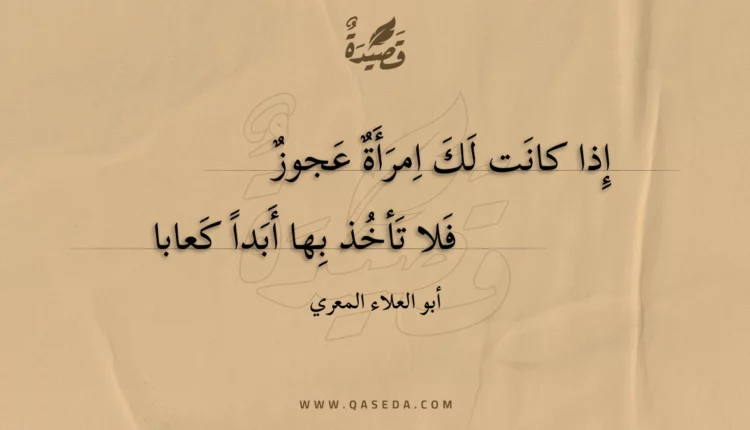 قَصِيدَةٌ
إِذا كانَت لَكَ اِمرَأَةٌ عَجوزٌ
فَلا تَأخُذ بِها أَبَداً كَعابا
أبو العلاء المعري
WWW.QASEDA.COM